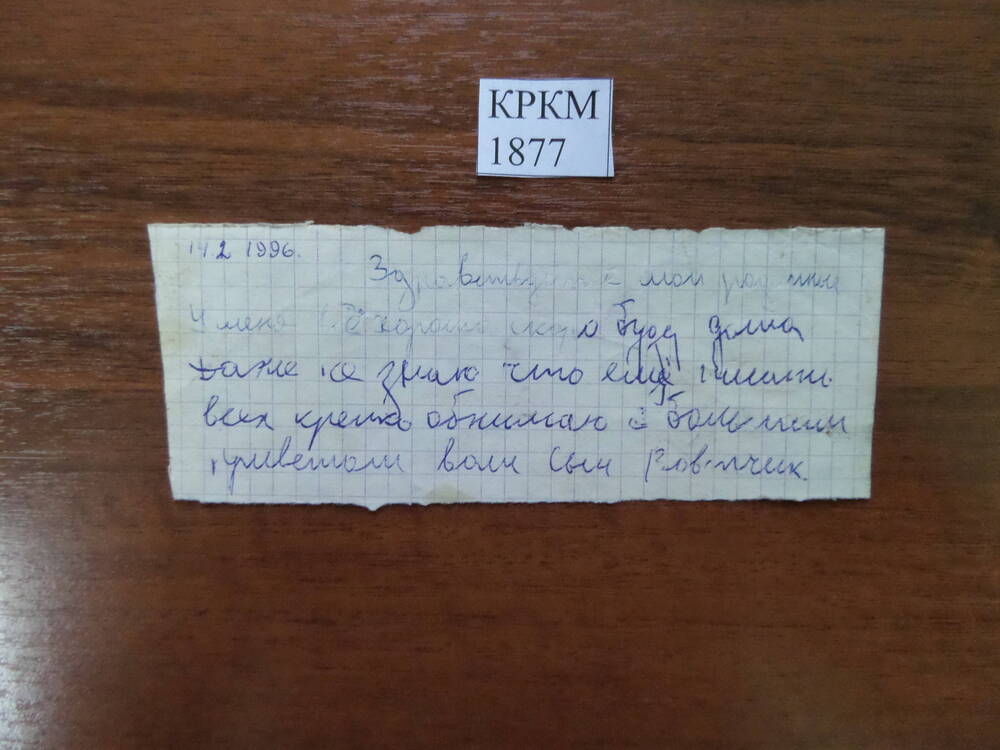 КРКМ
1877
14.2 1996.
Здравствуйте мои родные
У меня всё хорошо скоро буду дома
даже не знаю что ещё писать
всех крепко обнимаю с большим
приветом ваш сын